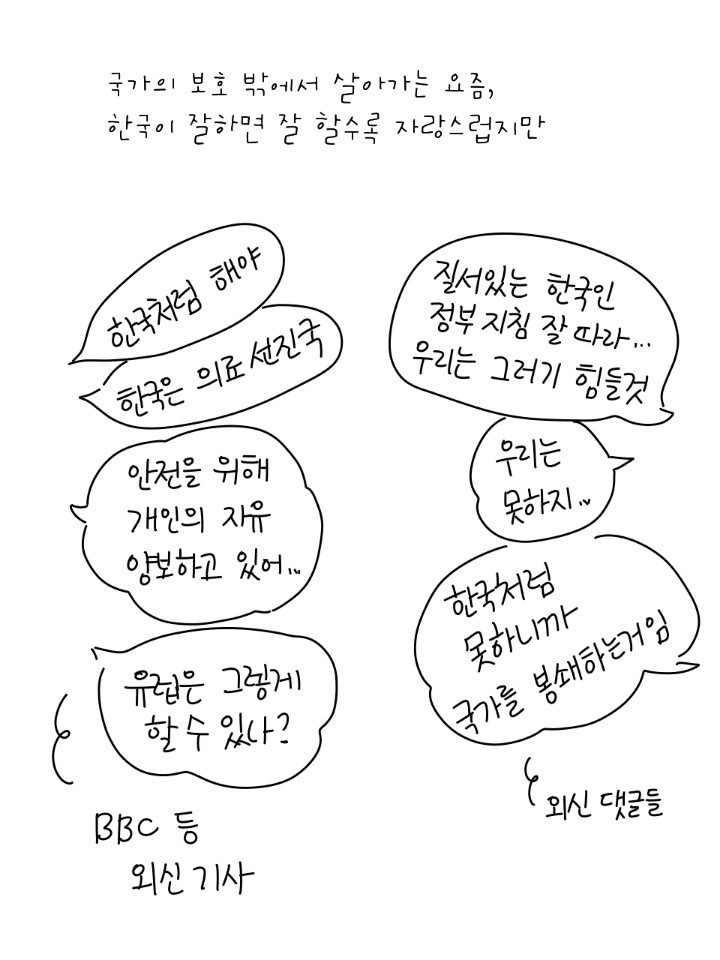 국가의 보호 밖에서 살아가는 요즘,
한국이 잘하면 잘 할수록 자랑스럽지만
한국처럼 해야
한국은 의료 선진국
안전을 위해
개인의 자유
양보하고 있어...
유럽은 그렇게
할 수 있나?
BBC 등
외신 기사
질서있는 한국인
정부 지침 잘 따라...
우리는 그러기 힘들것
우리는
못하지..
한국처럼
못하니까
국가를 봉쇄하는거임
외신 댓글들